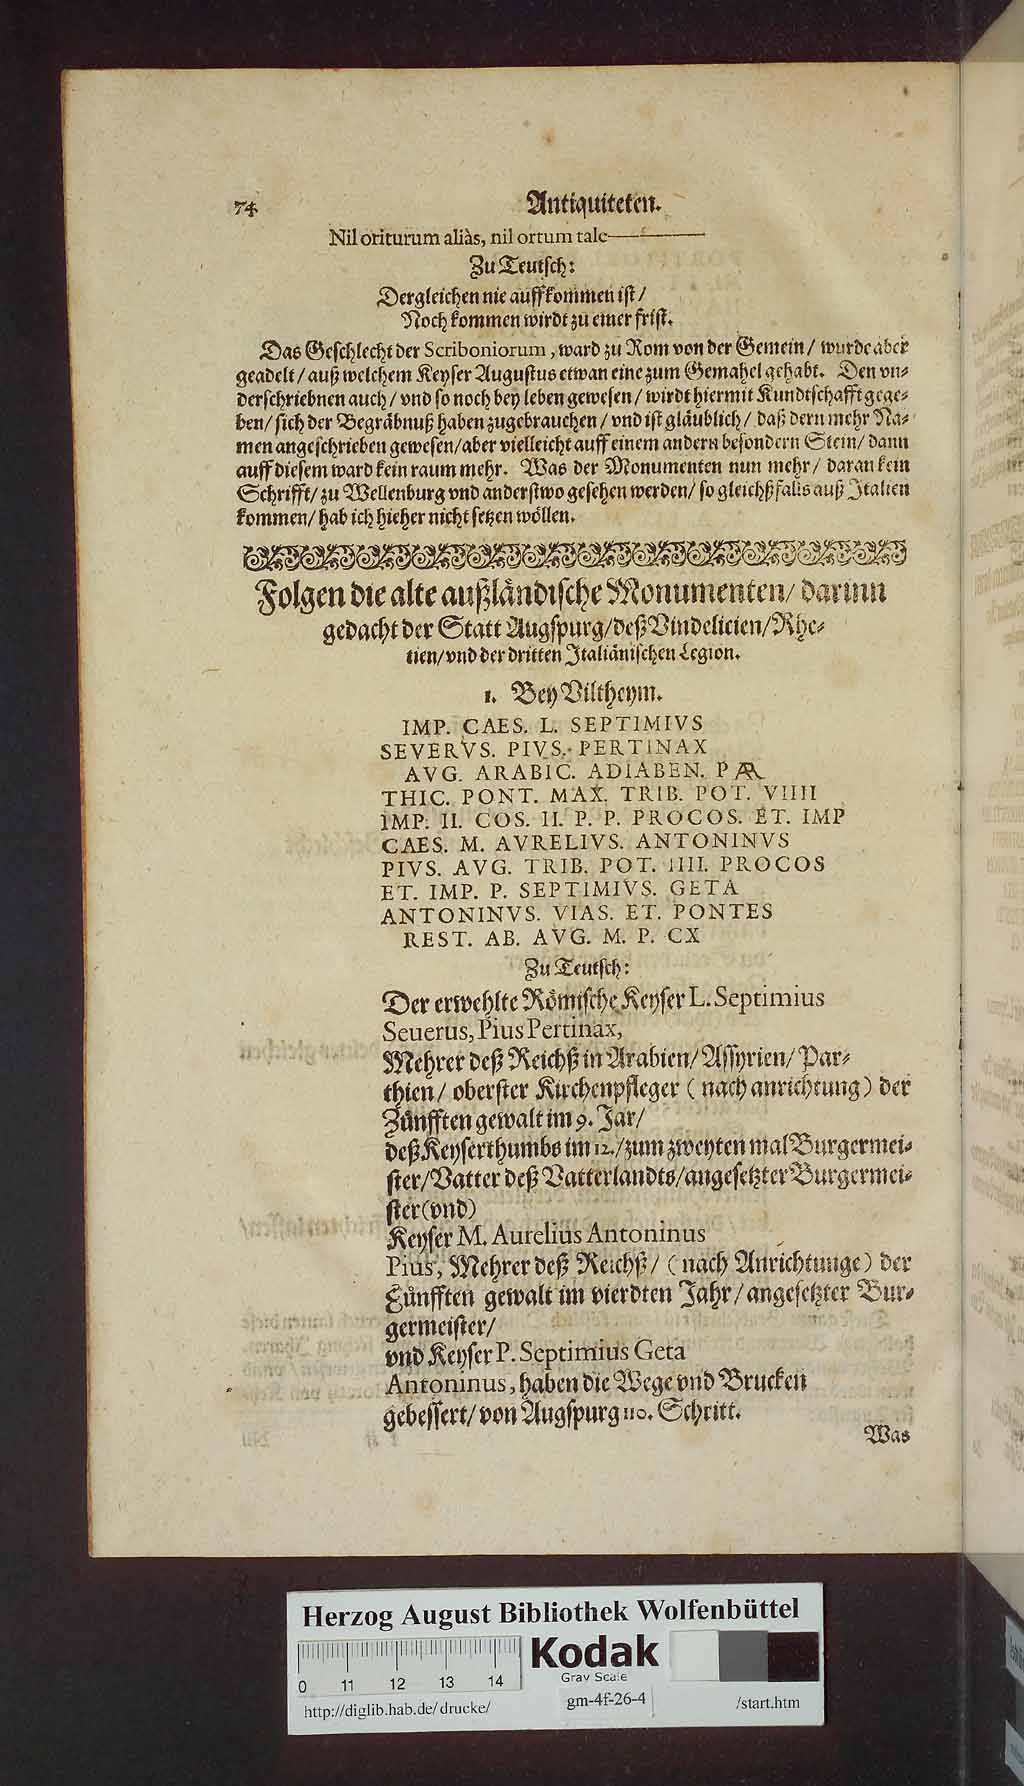 74
Antiquiteten.
Nil oriturum aliàs, nil ortum tale
Zu Teutsch:
Dergleichen nie auffkommen ist/
Noch kommen wirdt zu einer frist.
Das Geschlecht der Scriboniorum, ward zu Rom von der Gemein/ wurde aber
geadelt/ auß welchem Keyser Augustus etwan eine zum Gemahel gehabt. Den vn-
derschriebnen auch/ vnd so noch bey leben gewesen/ wirdt hiermit Kundtschafft gege-
ben/ sich der Begräbnuß haben zugebrauchen/ vnd ist gläublich/ daß dern mehr Na-
men angeschrieben gewesen/ aber vielleicht auff einem andern besondern Stein/ dann
auff diesem ward kein raum mehr. Was der Monumenten nun mehr/ daran kein
Schrifft/ zu Wellenburg vnd anderstwo gesehen werden/ so gleichßfalls auß Italien
kommen/ hab ich hieher nicht setzen wöllen.
Folgen die alte außländische Monumenten/ darinn
gedacht der Statt Augspurg/ deß Vindelicien/ Rhe-
tien/ vnd der dritten Italiänischen Legion.
1. Bey Viltheym.
IMP. CAES. L. SEPTIMIVS
SEVERVS. PIVS. PERTINAX
AVG. ARABIC. ADIABEN. PAR
THIC. PONT. MAX. TRIB. POT. VIIII
IMP. II. COS. II. P. P. PROCOS. ET. IMP
CAES. M. AVRELIVS. ANTONINVS
PIVS. AVG. TRIB. POT. IIII. PROCOS
ET. IMP. P. SEPTIMIVS. GETA
ANTONINVS. VIAS. ET. PONTES
REST. AB. AVG. M. P. CX
Zu Teutsch:
Der erwehlte Römische Keyser L. Septimius
Seuerus, Pius Pertinax,
Mehrer deß Reichß in Arabien/ Assyrien/ Par-
thien/ oberster Kirchenpfleger (nach anrichtung) der
Zünfften gewalt im 9. Jar/
deß Keyserthumbs im 12./ zum zweyten mal Burgermei-
ster/ Vatter deß Vatterlandts/ angesetzter Burgermei-
ster (vnd)
Keyser M. Aurelius Antoninus
Pius, Mehrer deß Reichß/ (nach Anrichtunge) der
Zünfften gewalt im vierdten Jahr/ angesetzter Bur-
germeister/
vnd Keyser P. Septimius Geta
Antoninus, haben die Wege vnd Brucken
gebessert/ von Augspurg 110. Schritt.
Was
Herzog August Bibliothek Wolfenbüttel
Kodak
Gray Scale
0 11 12 13 14
http://diglib.hab.de/drucke/
gm-4f-26-4
/start.htm